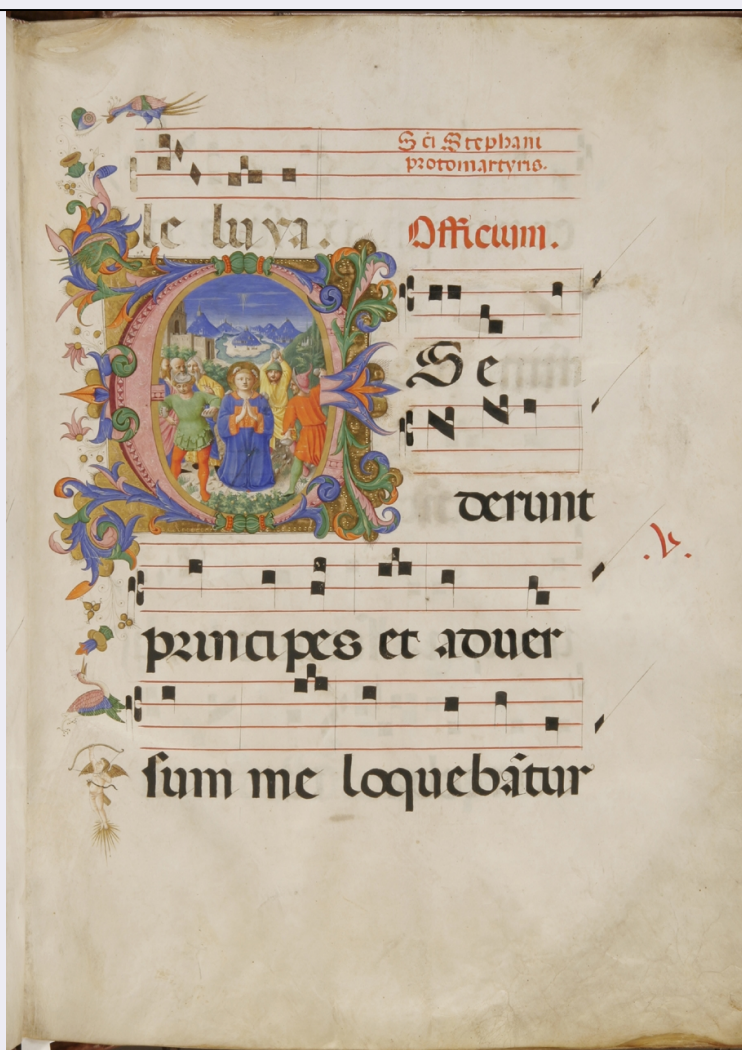 Sci Stephani
protomartyris.
le luya. Officium.
E Se
derunt
principes et aduer
sum me loquebãtur
.v.